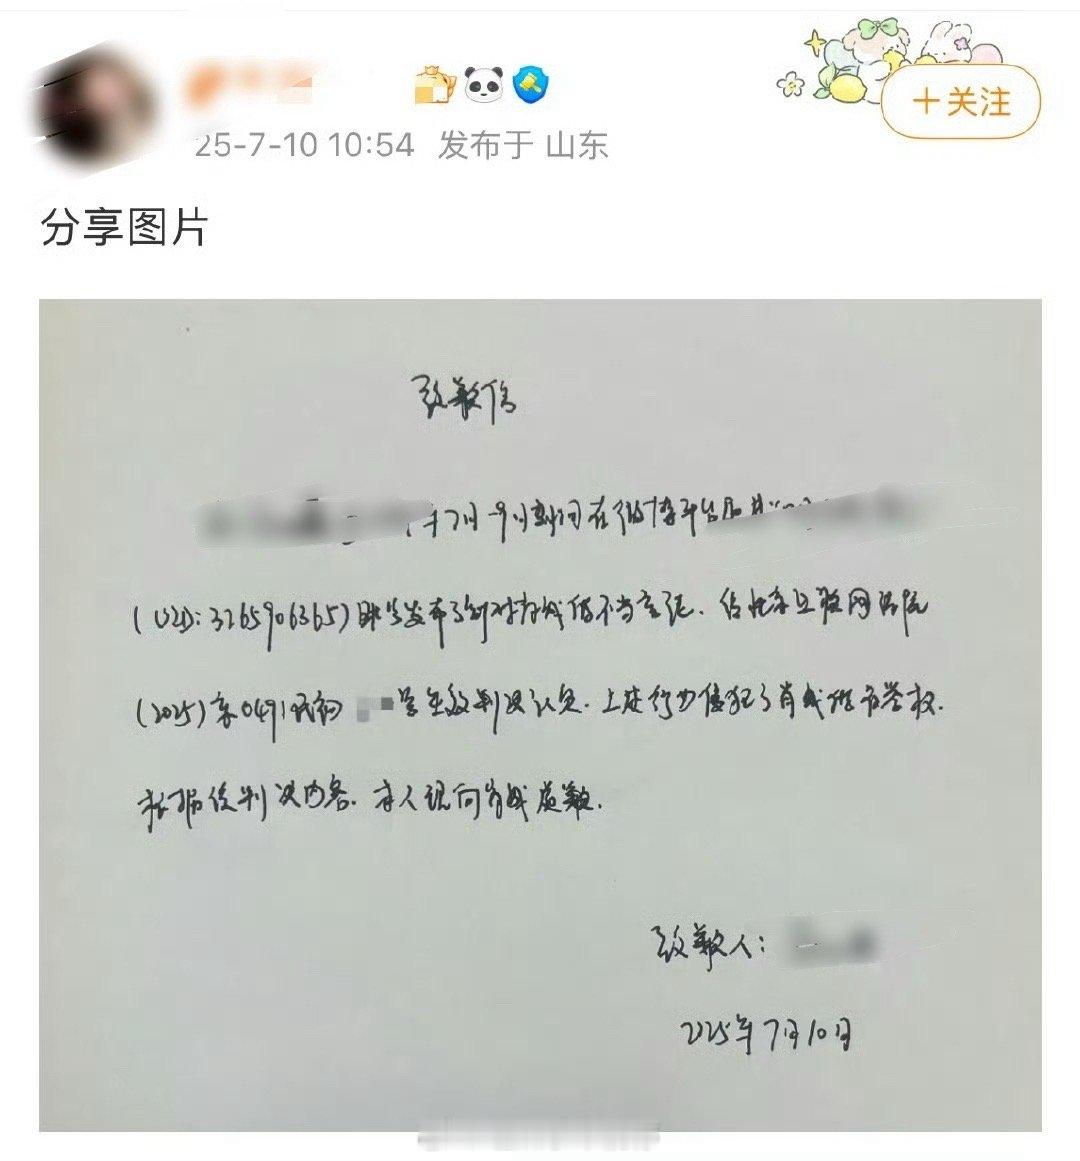 25-7-10 10:54 发布于 山东
+关注
分享图片
致歉信
7月-9月期间在微博平台
(UID: 3265906365) 账号发布了针对肖战的不当言论. 经北京互联网法院
(2025) 京0491民初 号生效判决认定. 上述行为侵犯了肖战的名誉权.
根据该判决内容. 本人现向肖战致歉.
致歉人:
2025年7月10日